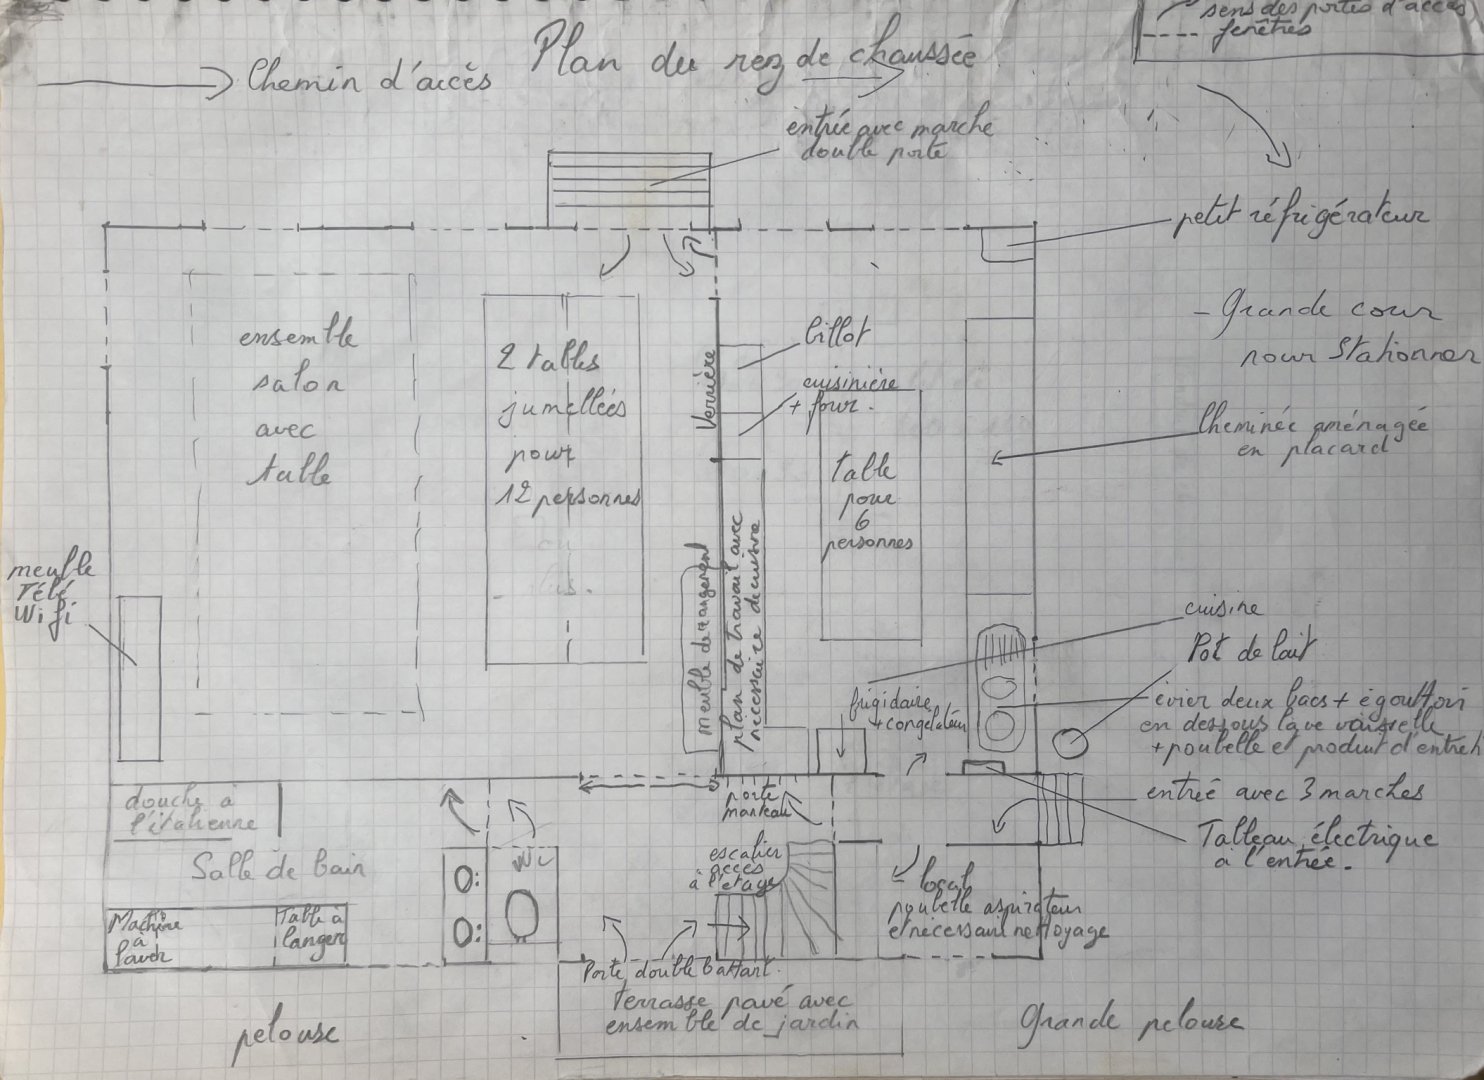 sens des portes d'accès
fenêtres
Plan du rez de chaussée
Chemin d'accès
entrée avec marche
double porte
petit réfrigérateur
- Grande cour
pour Stationner
billot
cuisinière
+ four.
Cheminée aménagée
en placard
ensemble
salon
avec
table
2 tables
jumellées
pour
12 personnes
Verrière
table
pour
6
personnes
meuble
Télé
Wifi
meuble de rangement
plan de travail avec
nécessaire de cuisine
cuisine
Pot de lait
frigidaire
+ congélateur
évier deux bacs + égouttoir
en dessous lave vaisselle
+ poubelle et produit d'entreti
entrée avec 3 marches
Tableau électrique
à l'entrée.
douche à
l'italienne
porte
manteau
Salle de bain
WC
escalier
accès
à l'étage
local
poubelle aspirateur
et nécessaire nettoyage
Machine
à
laver
Table à
langer
Porte double battant.
Terrasse pavé avec
ensemble de jardin
pelouse
Grande pelouse